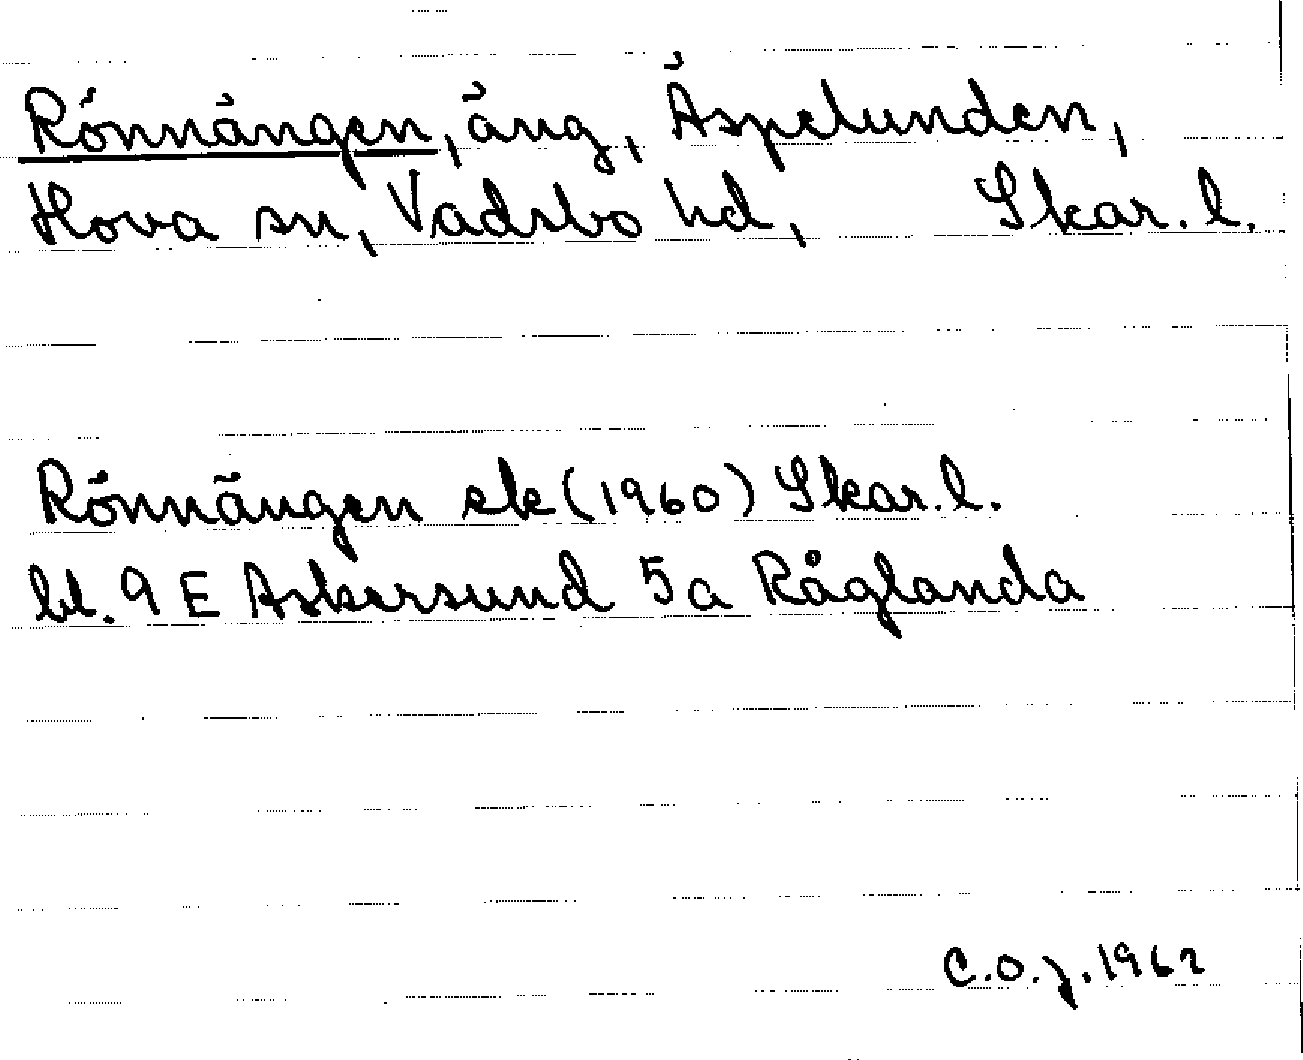 Rönnängen, äng, Äspelunden,
Hova sn, Vadsbo hd, Skar. l.
Rönnängen ek (1960) Skar. l.
bl. 9 E Askersund 5a Råglanda
C.O.J. 1962